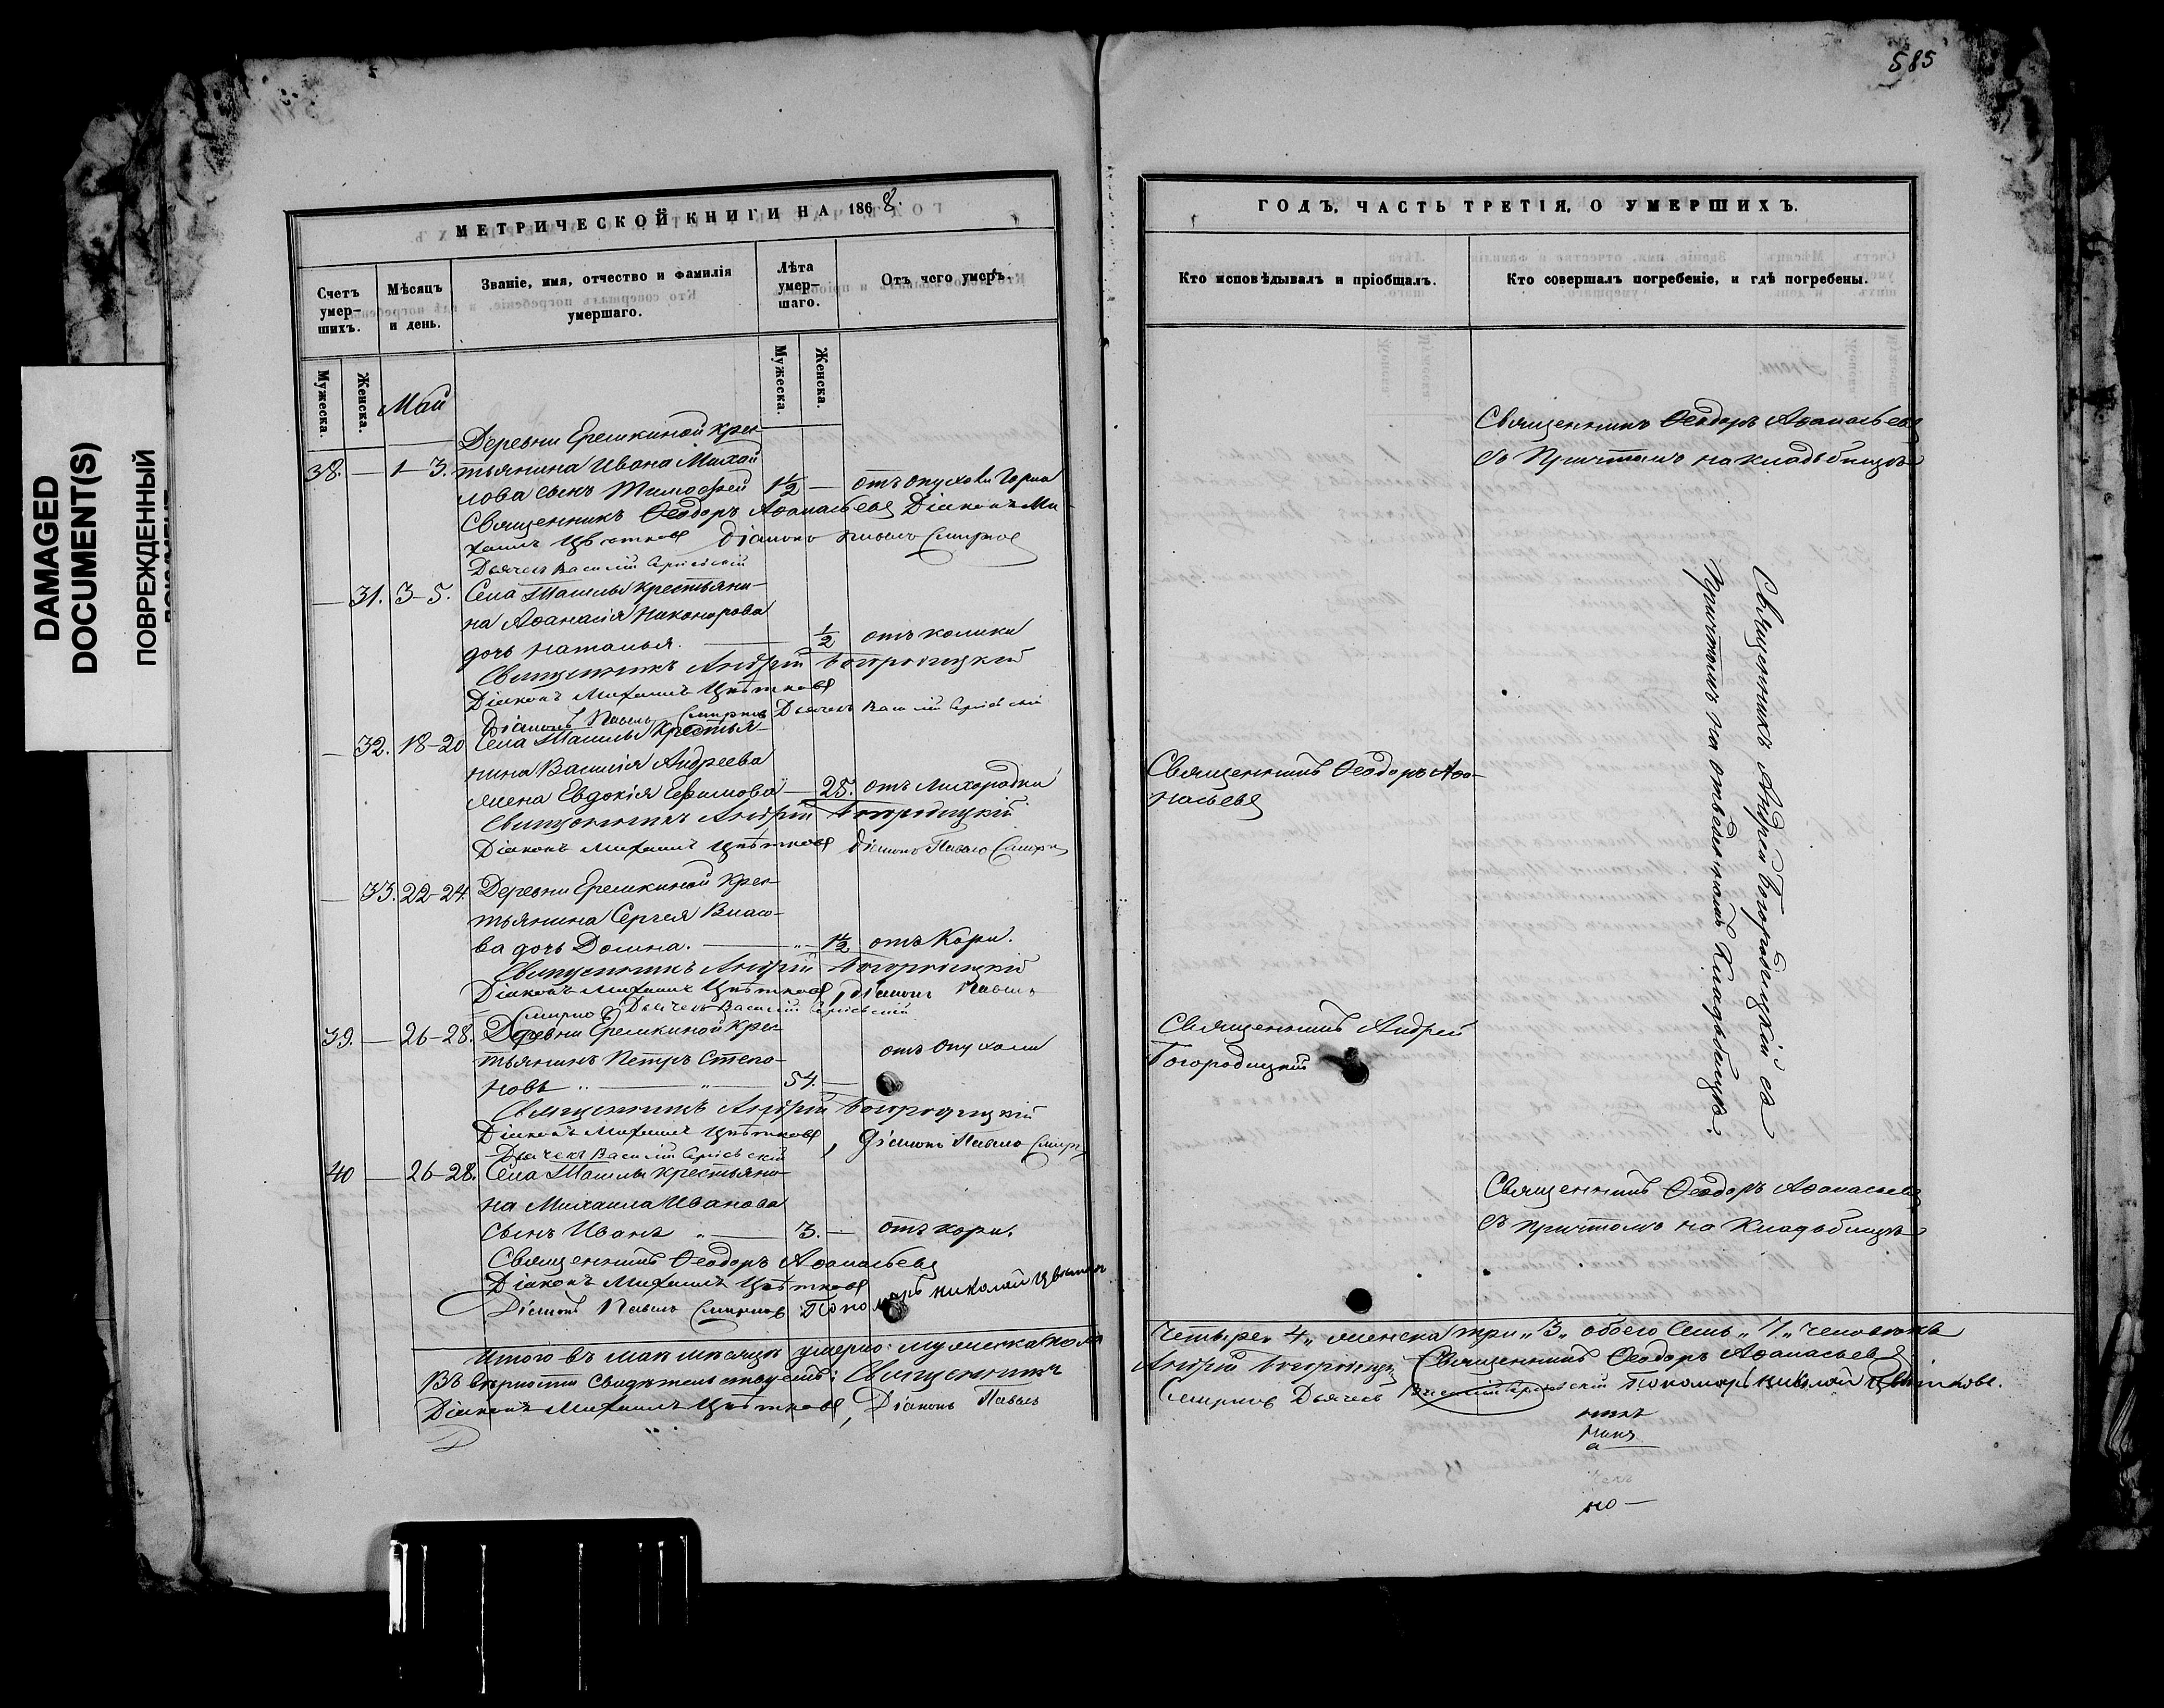 DAMAGED
DOCUMENT(S)
ПОВРЕЖДЕННЫЙ
585
МЕТРИЧЕСКОЙ КНИГИ НА 1868.
Счетъ умершихъ.
Мѣсяцъ и день.
Званіе, имя, отчество и фамилія умершаго.
Лѣта умершаго.
Отъ чего умеръ.
Мужеска.
Женска.
Мужеска.
Женска.
Май
Деревни Ерешкиной крес
38. — 1–3. тьянина Ивана Михай
лова сынъ Тимофей 1½ — отъ опухоли горла
Священникъ Ѳеодоръ Аѳанасьевъ Діаконъ Ми-
хаилъ Цвѣтковъ Діаконъ Павелъ Смирнов
Дьячекъ Василій
— 31. 3–5. Села Ташлы крестьяни-
на Аѳанасія Никонорова
дочь Наталья. — ½ отъ колики
Священникъ Андрей Богородицкій
Діаконъ Михаилъ Цвѣтковъ
Діаконъ Павелъ Смирнов Дьячекъ Василій
— 32. 18–20 Села Ташлы крестья-
нина Василія Андреева
жена Евдокія Ефимова — 25. отъ лихорадки
Священникъ Андрей Богородицкій
Діаконъ Михаилъ Цвѣтковъ Діаконъ Павелъ Смирн
— 33. 22–24. Деревни Ерешкиной крес-
тьянина Сергея Власо-
ва дочь Домна. — 1½ отъ кори.
Священникъ Андрей Богородицкій
Діаконъ Михаилъ Цвѣтковъ, Діаконъ Павелъ
Смирнов Дьячекъ Василій
39. — 26–28. Деревни Ерешкиной крес-
тьянинъ Петръ Степа-
новъ — 54. — отъ опухоли
Священникъ Андрей Богородицкій
Діаконъ Михаилъ Цвѣтковъ, Діаконъ Павелъ Смирн
Дьячекъ Василій
40 — 26–28. Села Ташлы крестьяни-
на Михаила Иванова
сынъ Иванъ — 3. — отъ кори.
Священникъ Ѳеодоръ Аѳанасьевъ
Діаконъ Михаилъ Цвѣтковъ
Діаконъ Павелъ Смирнов Пономарь Николай Цвѣтков
Итого въ маѣ мѣсяцѣ умерло: мужеска пола
Въ вѣрности свидѣтельствуетъ: Священникъ
Діаконъ Михаилъ Цвѣтковъ, Діаконъ Павелъ
ГОДЪ, ЧАСТЬ ТРЕТІЯ, О УМЕРШИХЪ.
Кто исповѣдывалъ и пріобщалъ.
Кто совершалъ погребеніе, и гдѣ погребены.
Священникъ Ѳеодоръ Аѳанасьевъ
съ причтомъ на кладбищѣ
Священникъ Андрей Богородицкій съ
причтомъ на отведенномъ кладбищѣ.
Священникъ Ѳеодоръ Аѳа-
насьевъ
Священникъ Андрей
Богородицкій
Священникъ Ѳеодоръ Аѳанасьевъ
съ причтомъ на кладбищѣ
четыре „4„ женска три „3„ обоего семь „7„ человѣкъ
Андрей Богородицкій Священникъ Ѳеодоръ Аѳанасьевъ.
Смирнов Дьячекъ Василій Пономарь Николай Цвѣтковъ.